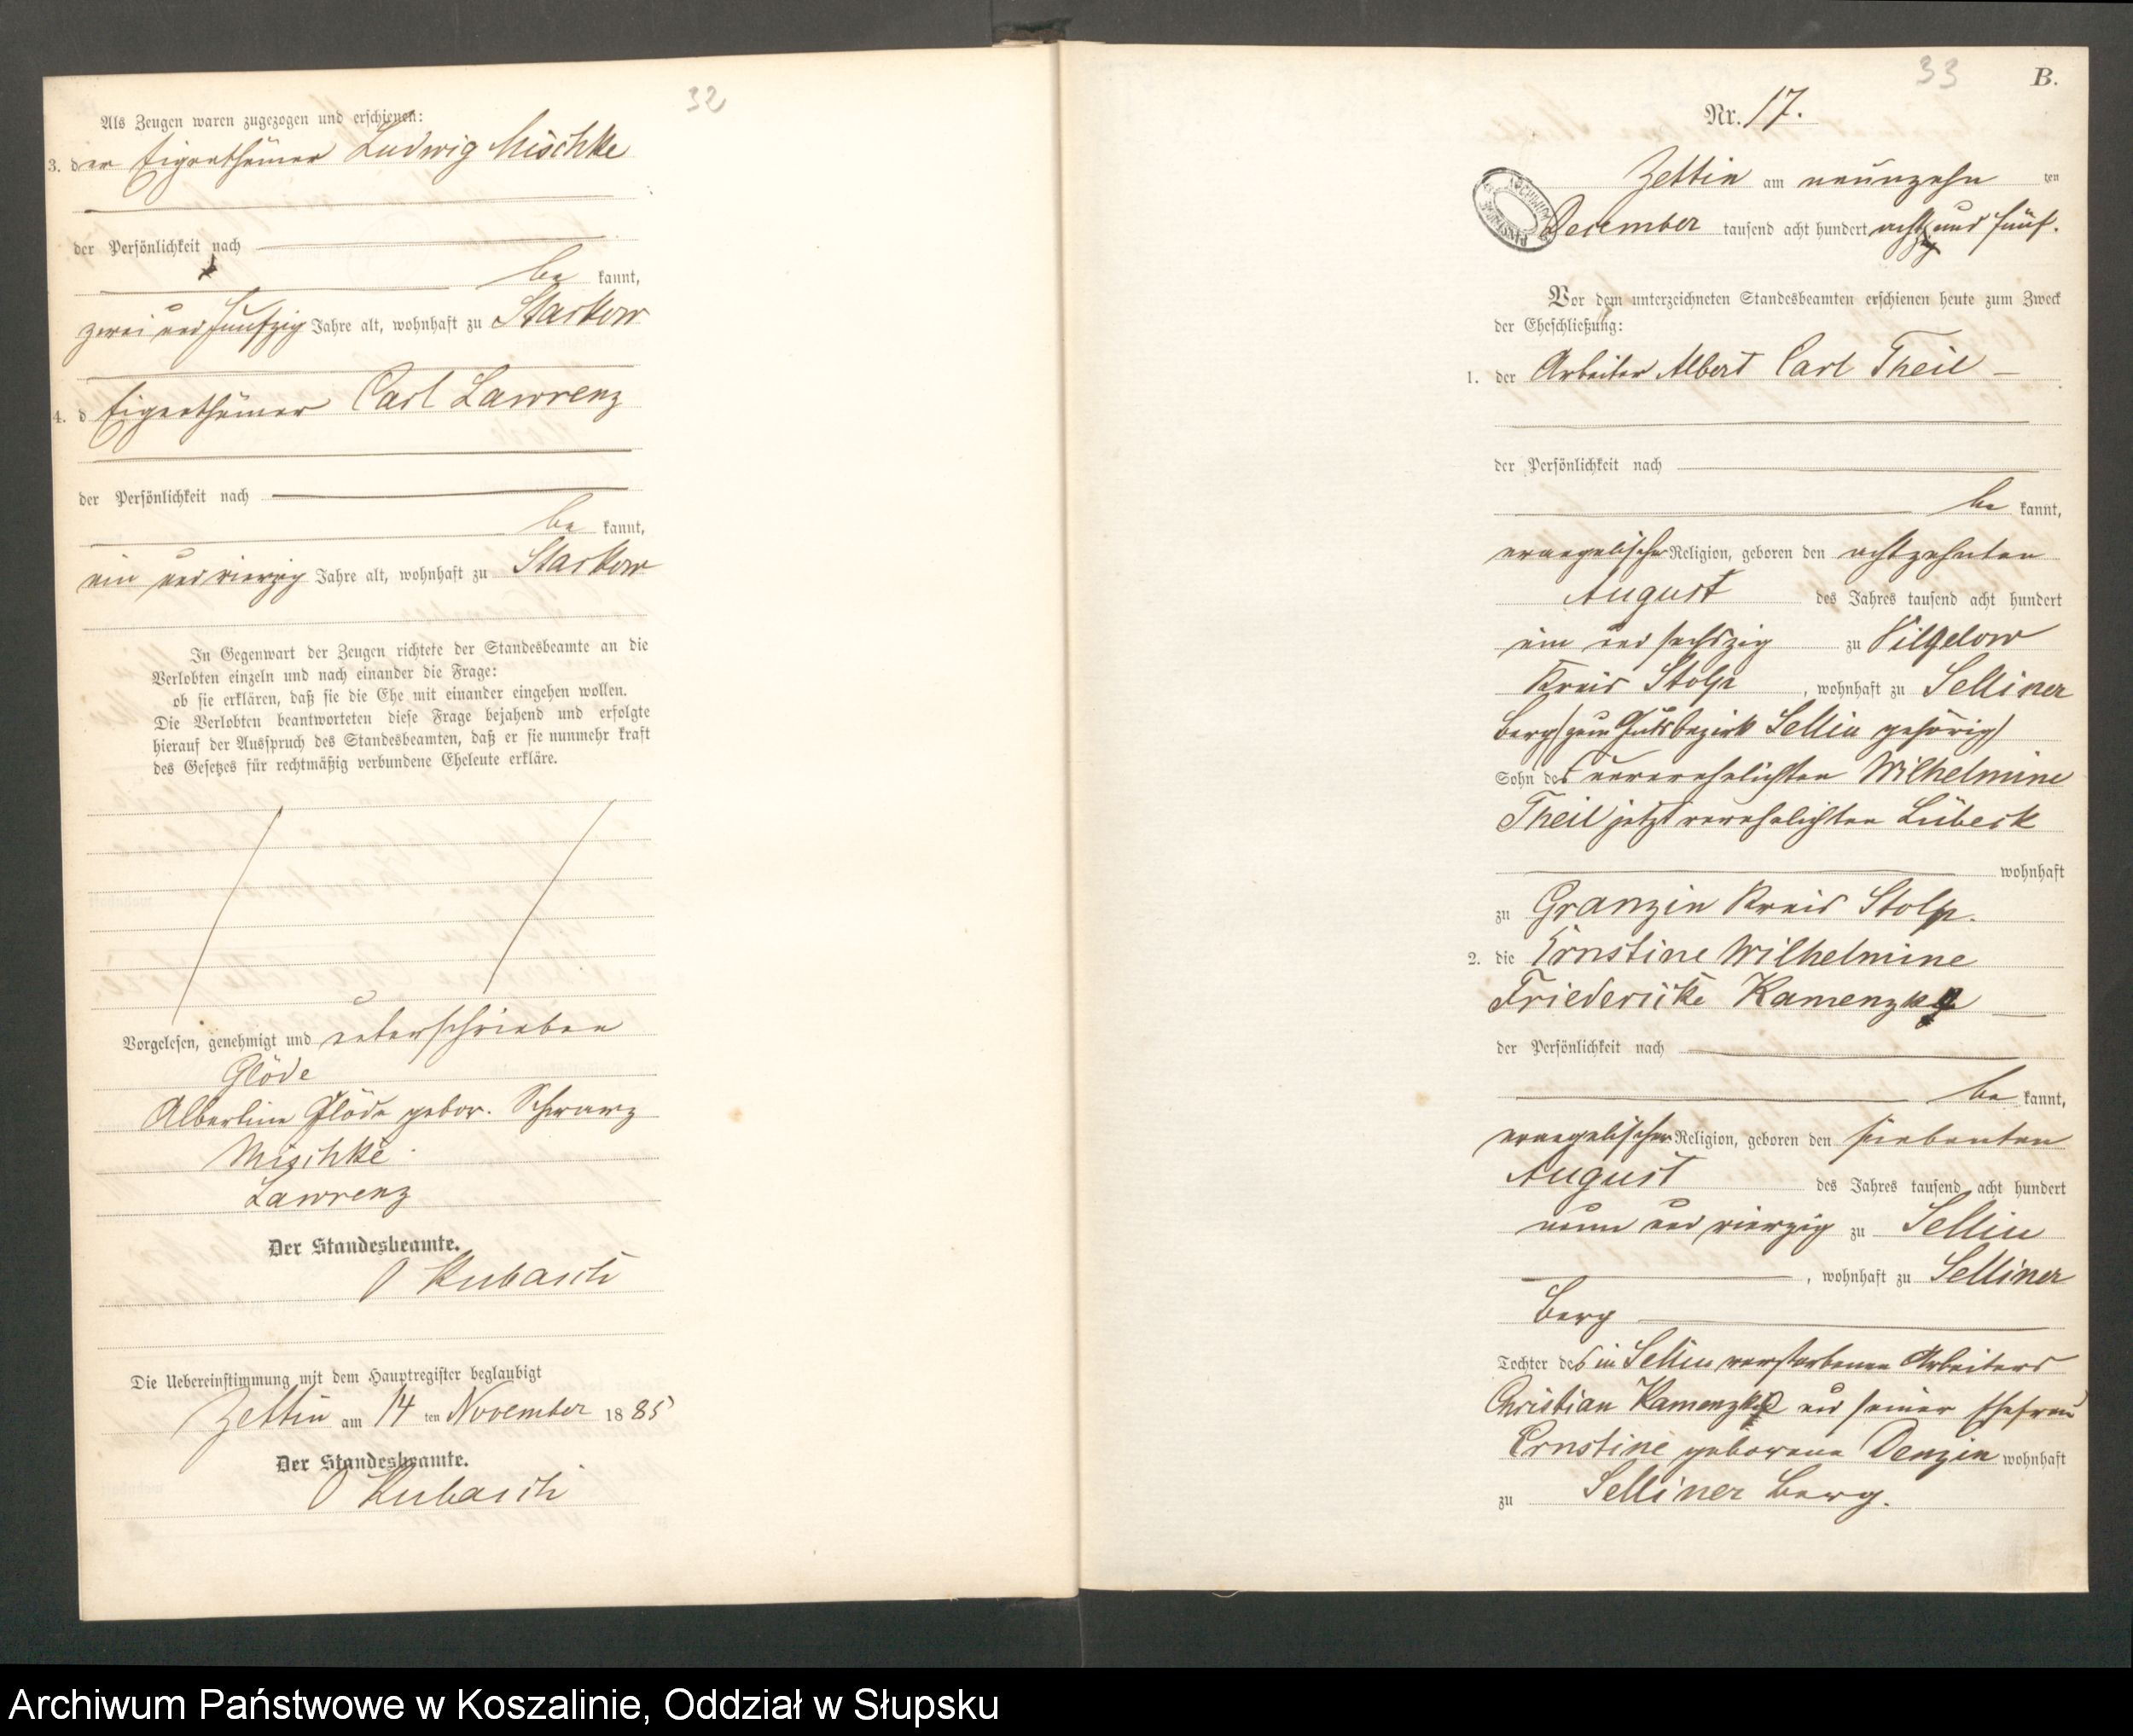 32
Als Zeugen waren zugezogen und erschienen:
3. der Eigenthümer Ludwig Mischke
der Persönlichkeit nach
be kannt,
zwei und fünfzig Jahre alt, wohnhaft zu Starkow
4. d Eigenthümer Carl Lawrenz
der Persönlichkeit nach
be kannt,
ein und vierzig Jahre alt, wohnhaft zu Starkow
In Gegenwart der Zeugen richtete der Standesbeamte an die
Verlobten einzeln und nach einander die Frage:
ob sie erklären, daß sie die Ehe mit einander eingehen wollen.
Die Verlobten beantworteten diese Frage bejahend und erfolgte
hierauf der Ausspruch des Standesbeamten, daß er sie nunmehr kraft
des Gesetzes für rechtmäßig verbundene Eheleute erkläre.
Vorgelesen, genehmigt und unterschrieben
Glöde
Albertine Glöde gebor. Schwarz
Mischke
Lawrenz
Der Standesbeamte.
Kubasch
Die Uebereinstimmung mit dem Hauptregister beglaubigt
Zettin am 14 ten November 18 85
Der Standesbeamte.
Kubasch
33
B.
Nr. 17.
Zettin am neunzehn ten
December tausend acht hundert achtzig und fünf.
Vor dem unterzeichneten Standesbeamten erschienen heute zum Zweck
der Eheschließung:
1. der Arbeiter Albert Carl Theil
der Persönlichkeit nach
be kannt,
evangelischer Religion, geboren den achtzehnten
August des Jahres tausend acht hundert
ein und sechszig zu Vilgelow
Kreis Stolp, wohnhaft zu Selliner
Berg (zum Gutsbezirk Sellin gehörig)
Sohn der unverehelichten Wilhelmine
Theil jetzt verehelichten Lübeck
wohnhaft
zu Granzin Kreis Stolp.
2. die Ernstine Wilhelmine
Friedericke Kamenzke
der Persönlichkeit nach
be kannt,
evangelischer Religion, geboren den siebenten
August des Jahres tausend acht hundert
neun und vierzig zu Sellin
, wohnhaft zu Selliner
Berg
Tochter des in Sellin verstorbenen Arbeiters
Christian Kamenzke und seiner Ehefrau
Ernstine geborene Denzin wohnhaft
zu Selliner Berg.
Archiwum Państwowe w Koszalinie, Oddział w Słupsku